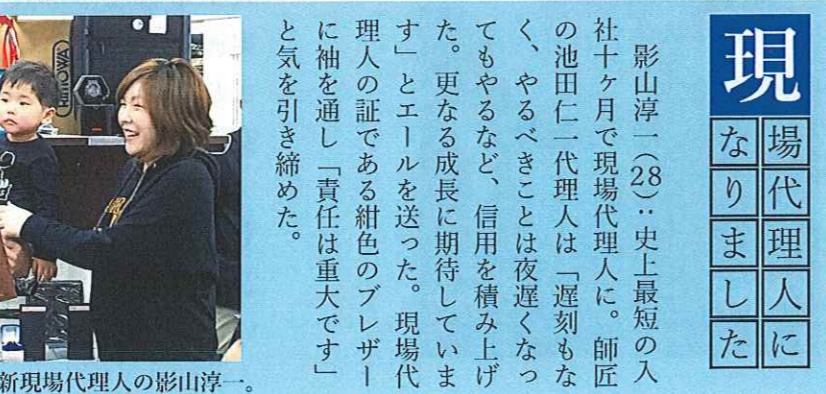 現場代理人に
なりました
影山淳一(28)：史上最短の入
社十ヶ月で現場代理人に。師匠
の池田仁一代理人は「遅刻もな
く、やるべきことは夜遅くなっ
てもやるなど、信用を積み上げ
た。更なる成長に期待していま
す」とエールを送った。現場代
理人の証である紺色のブレザー
に袖を通し「責任は重大です」
と気を引き締めた。
新現場代理人の影山淳一。